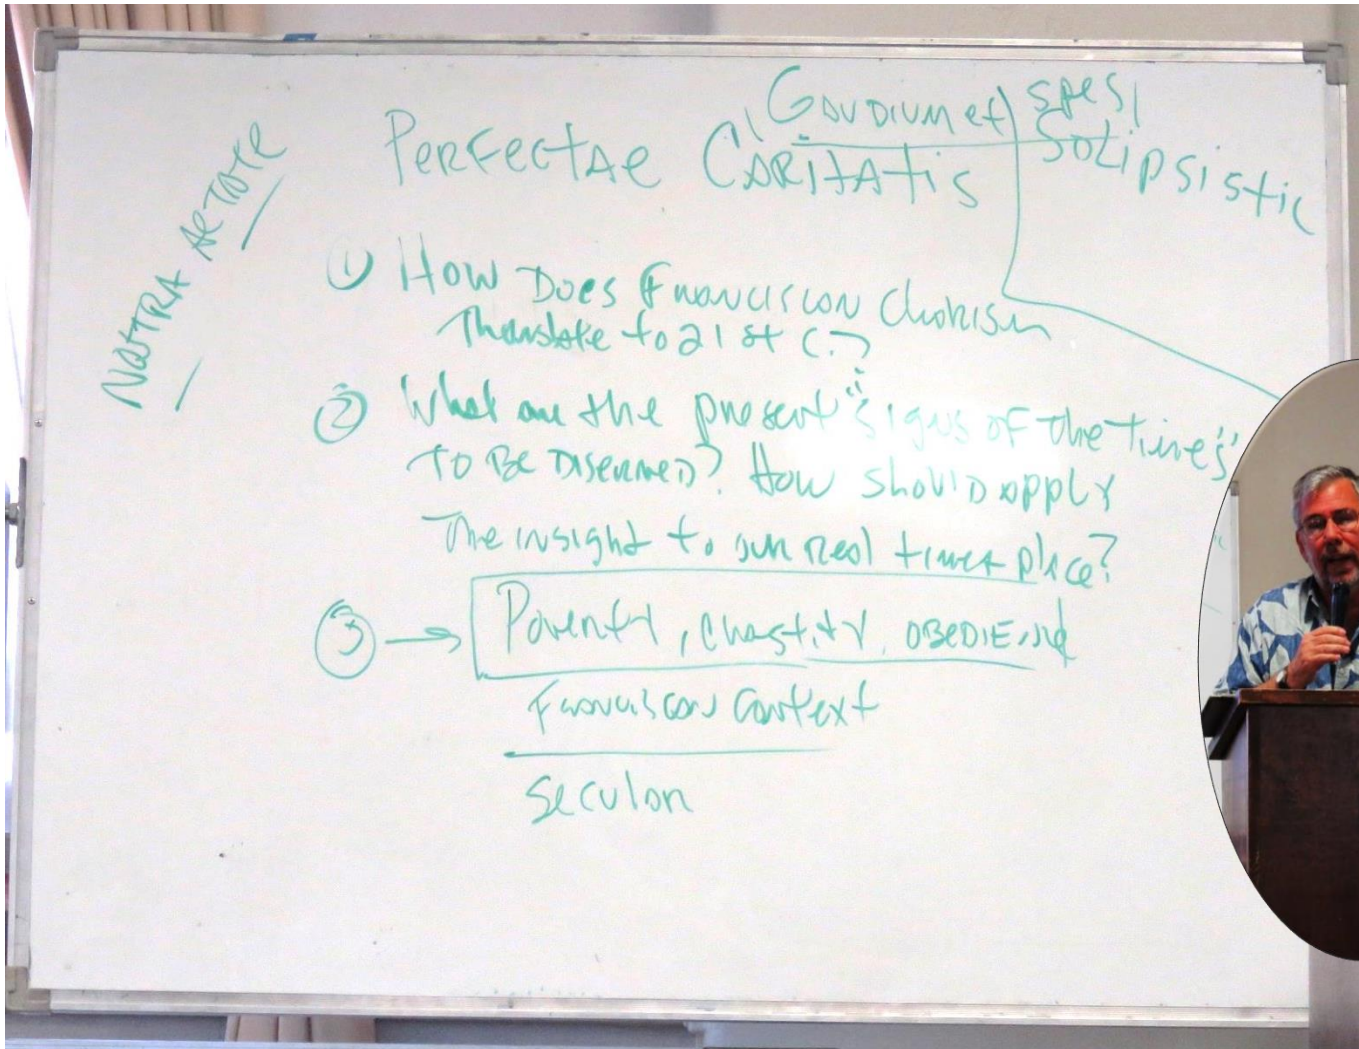 NOSTRA AETATE
GAUDIUM et SPES
PERFECTAE CARITATIS
SOLIPSISTIC
① How Does Franciscan Charism
Translate to 21st C.?
② What are the present "signs of the times"
TO BE DISERNED? How should apply
The insight to our real time + place?
③ → Poverty, chastity, OBEDIENCE
Franciscan context
Secular